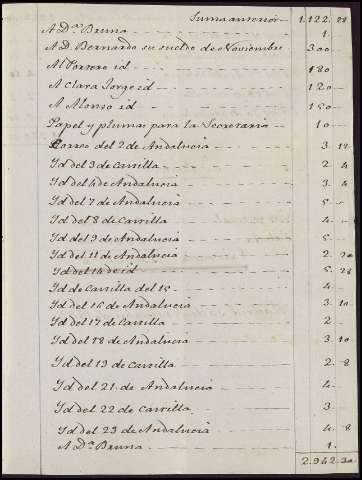 Suma anterior 1.122. 28
A D.ª Bruna 1.
A D. Bernardo su sueldo de Noviembre 300
Al Portero id 180
A Clara Jorge id 120
A Alonso id
Papel y plumas para la Secretaria 10
Correo del 2 de Andalucia 3. 12
Yd del 3 de Castilla 2. 4
Yd del 4 de Andalucia 3. 4
Yd del 7 de Andalucia 5
Yd del 8 de Castilla 4
Yd del 9 de Andalucia 5
Yd del 11 de Andalucia 2.
Yd del 14 de id 5. 28
Yd de Castilla del 15 4
Yd del 16 de Andalucia 3. 10
Yd del 17 de Castilla 2
Yd del 18 de Andalucia 3. 10
Yd del 19 de Castilla 2. 8
Yd del 21 de Andalucia 4
Yd del 22 de Castilla 3
Yd del 23 de Andalucia 4. 8
A D.ª Bruna 1.
2.942